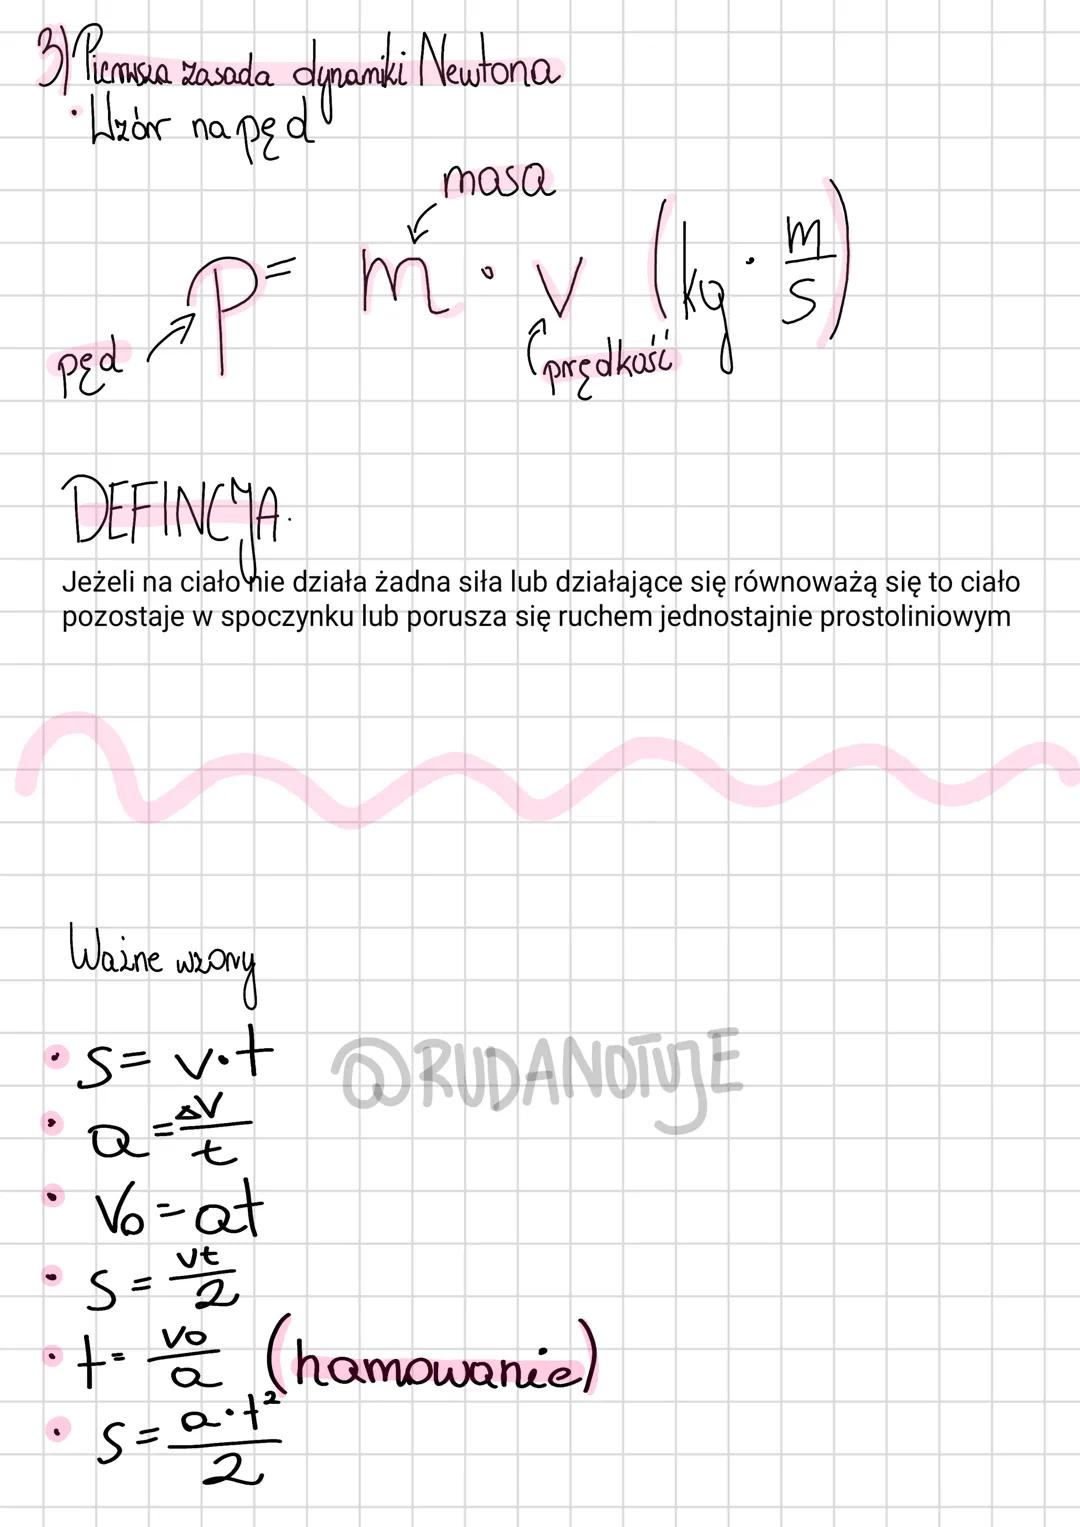 3) Pierwsza zasada dynamiki Newtona
• Wzór na pęd
masa
P = m · v (kg · m/s)
pęd
prędkość
DEFINCJA.
Jeżeli na ciało nie działa żadna siła lub działające się równoważą się to ciało
pozostaje w spoczynku lub porusza się ruchem jednostajnie prostoliniowym
Ważne wzory
• s = v·t
@RUDANOTUJE
• a = ΔV/t
• V₀ = at
• s = vt/2
• t = v₀/a (hamowanie)
• s = a·t²/2